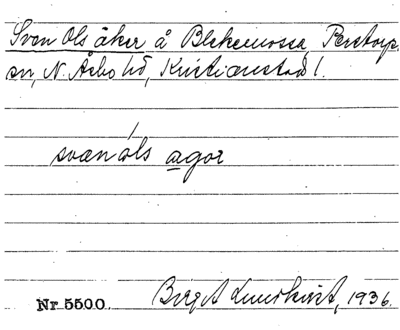 Sven Ols åker å Blekemossa, Perstorp
sn, N. Åsbo hd, Kristianstad l.
svæn óls agor
Nr 5500. Birgit Lundkvist, 1936.